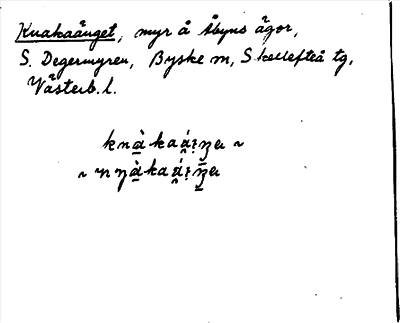 Knakaänget, myr å Åbyns ägor,
S. Degermyren, Byske sn, Skellefteå tg,
Västerb. l.
knàkaá̯ıŋen ~
~ nŋàkaá̯ıŋen